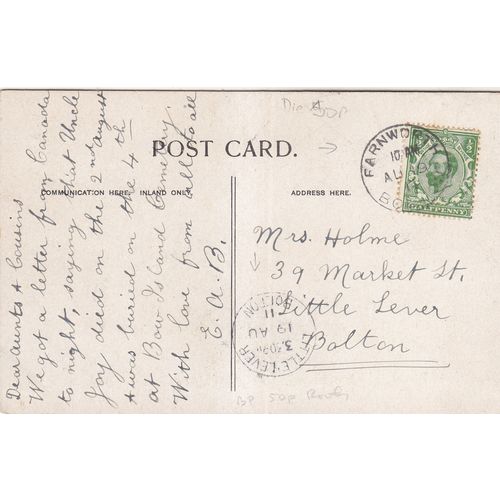 Dear aunts & cousins
We got a letter from Canada
to night, saying that Uncle
Joy died on the 2nd august
& was buried on the 4th
at Bow Island Cemetery
With love from all to all
E. A. B.
POST CARD.
COMMUNICATION HERE. INLAND ONLY.
ADDRESS HERE.
FARNWORTH
AU
HALFPENNY
Mrs. Holme
39 Market St.
Little Lever
Bolton
LITTLE LEVER
19 AU
11
BOLTON
50p
BP 50p